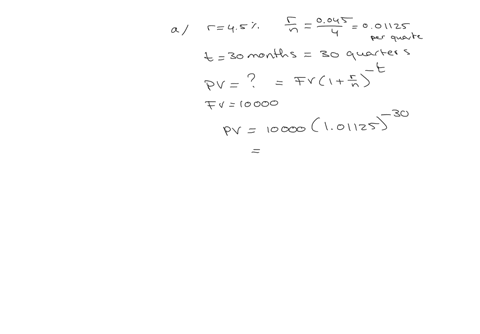 a/ r = 4.5% r/n = 0.045/4 = 0.01125 per quarte
t = 30 months = 30 quarters
PV = ? = FV(1 + r/n)^-t
FV = 10000
PV = 10000 (1.01125)^-30
=